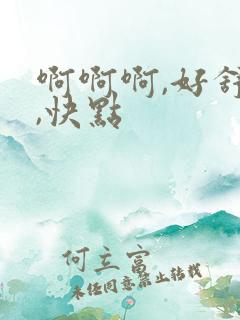 啊啊啊,好舒
,快點
何立富
未经同意禁止转载